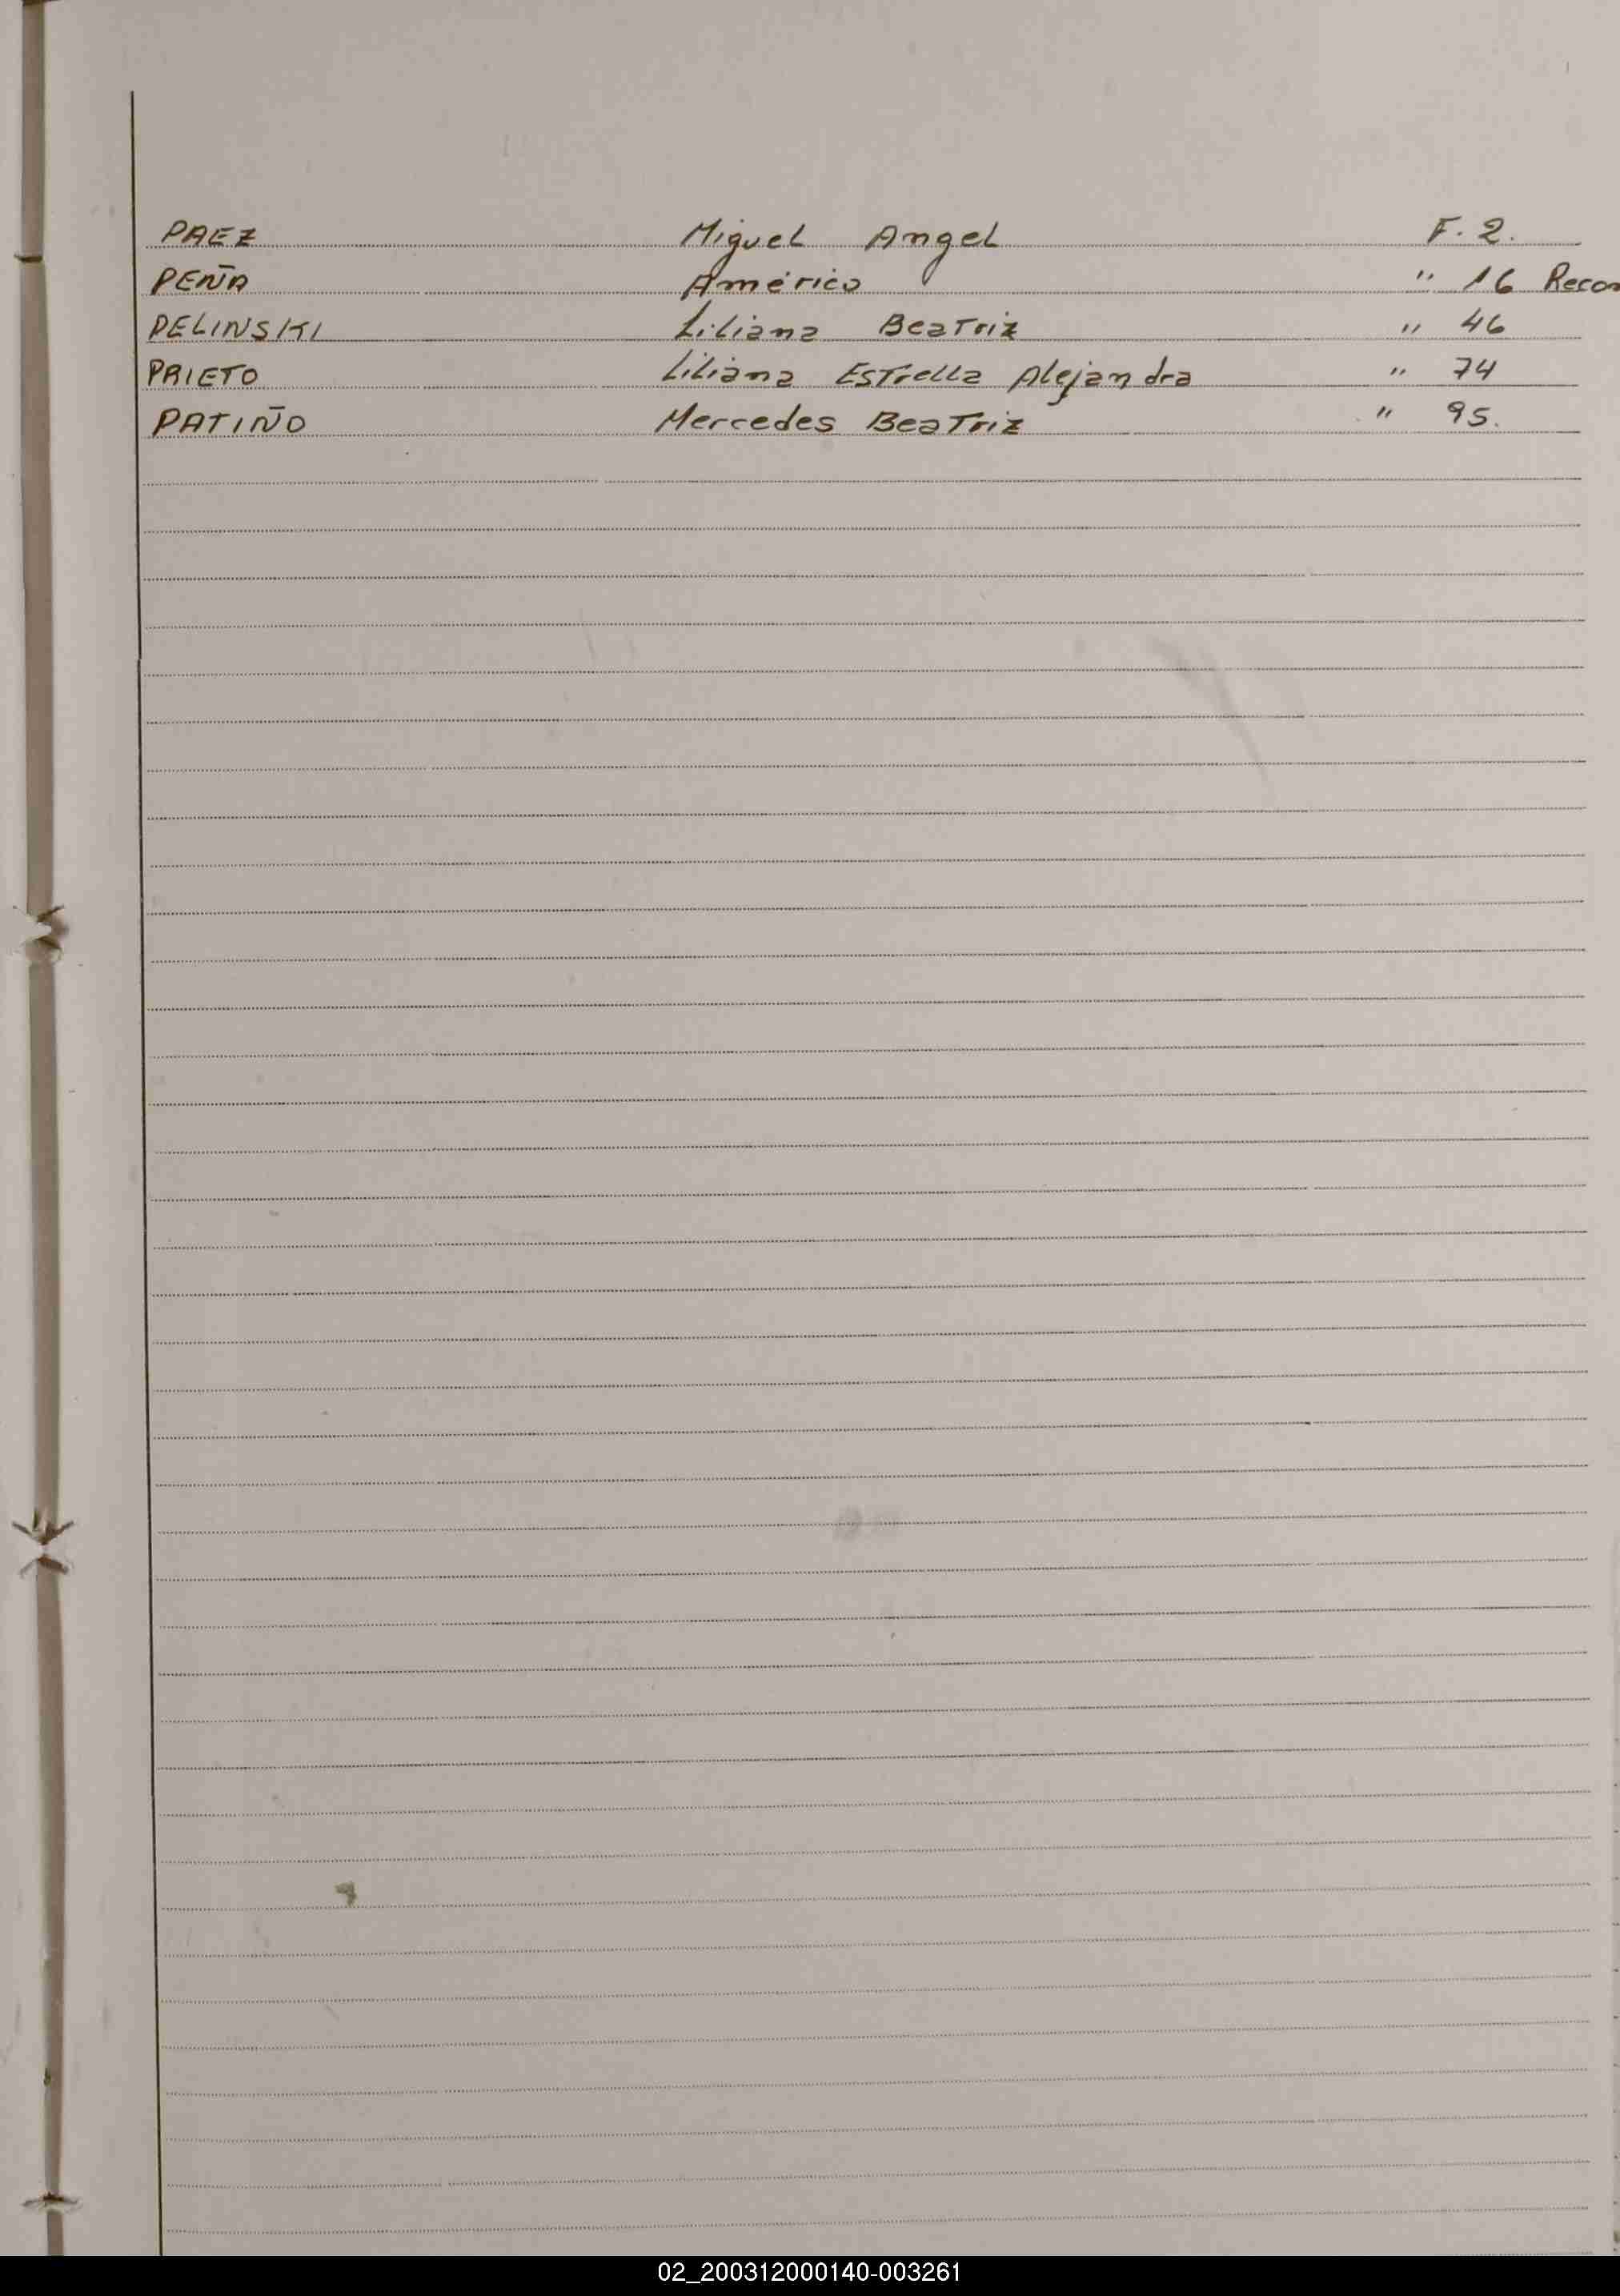 PAEZ Miguel Angel F. 2.
PEÑA Américo " 16 Recon
PELINSKI Liliana Beatriz " 46
PRIETO Liliana Estrella Alejandra " 74
PATIÑO Mercedes Beatriz " 95.
02_200312000140-003261